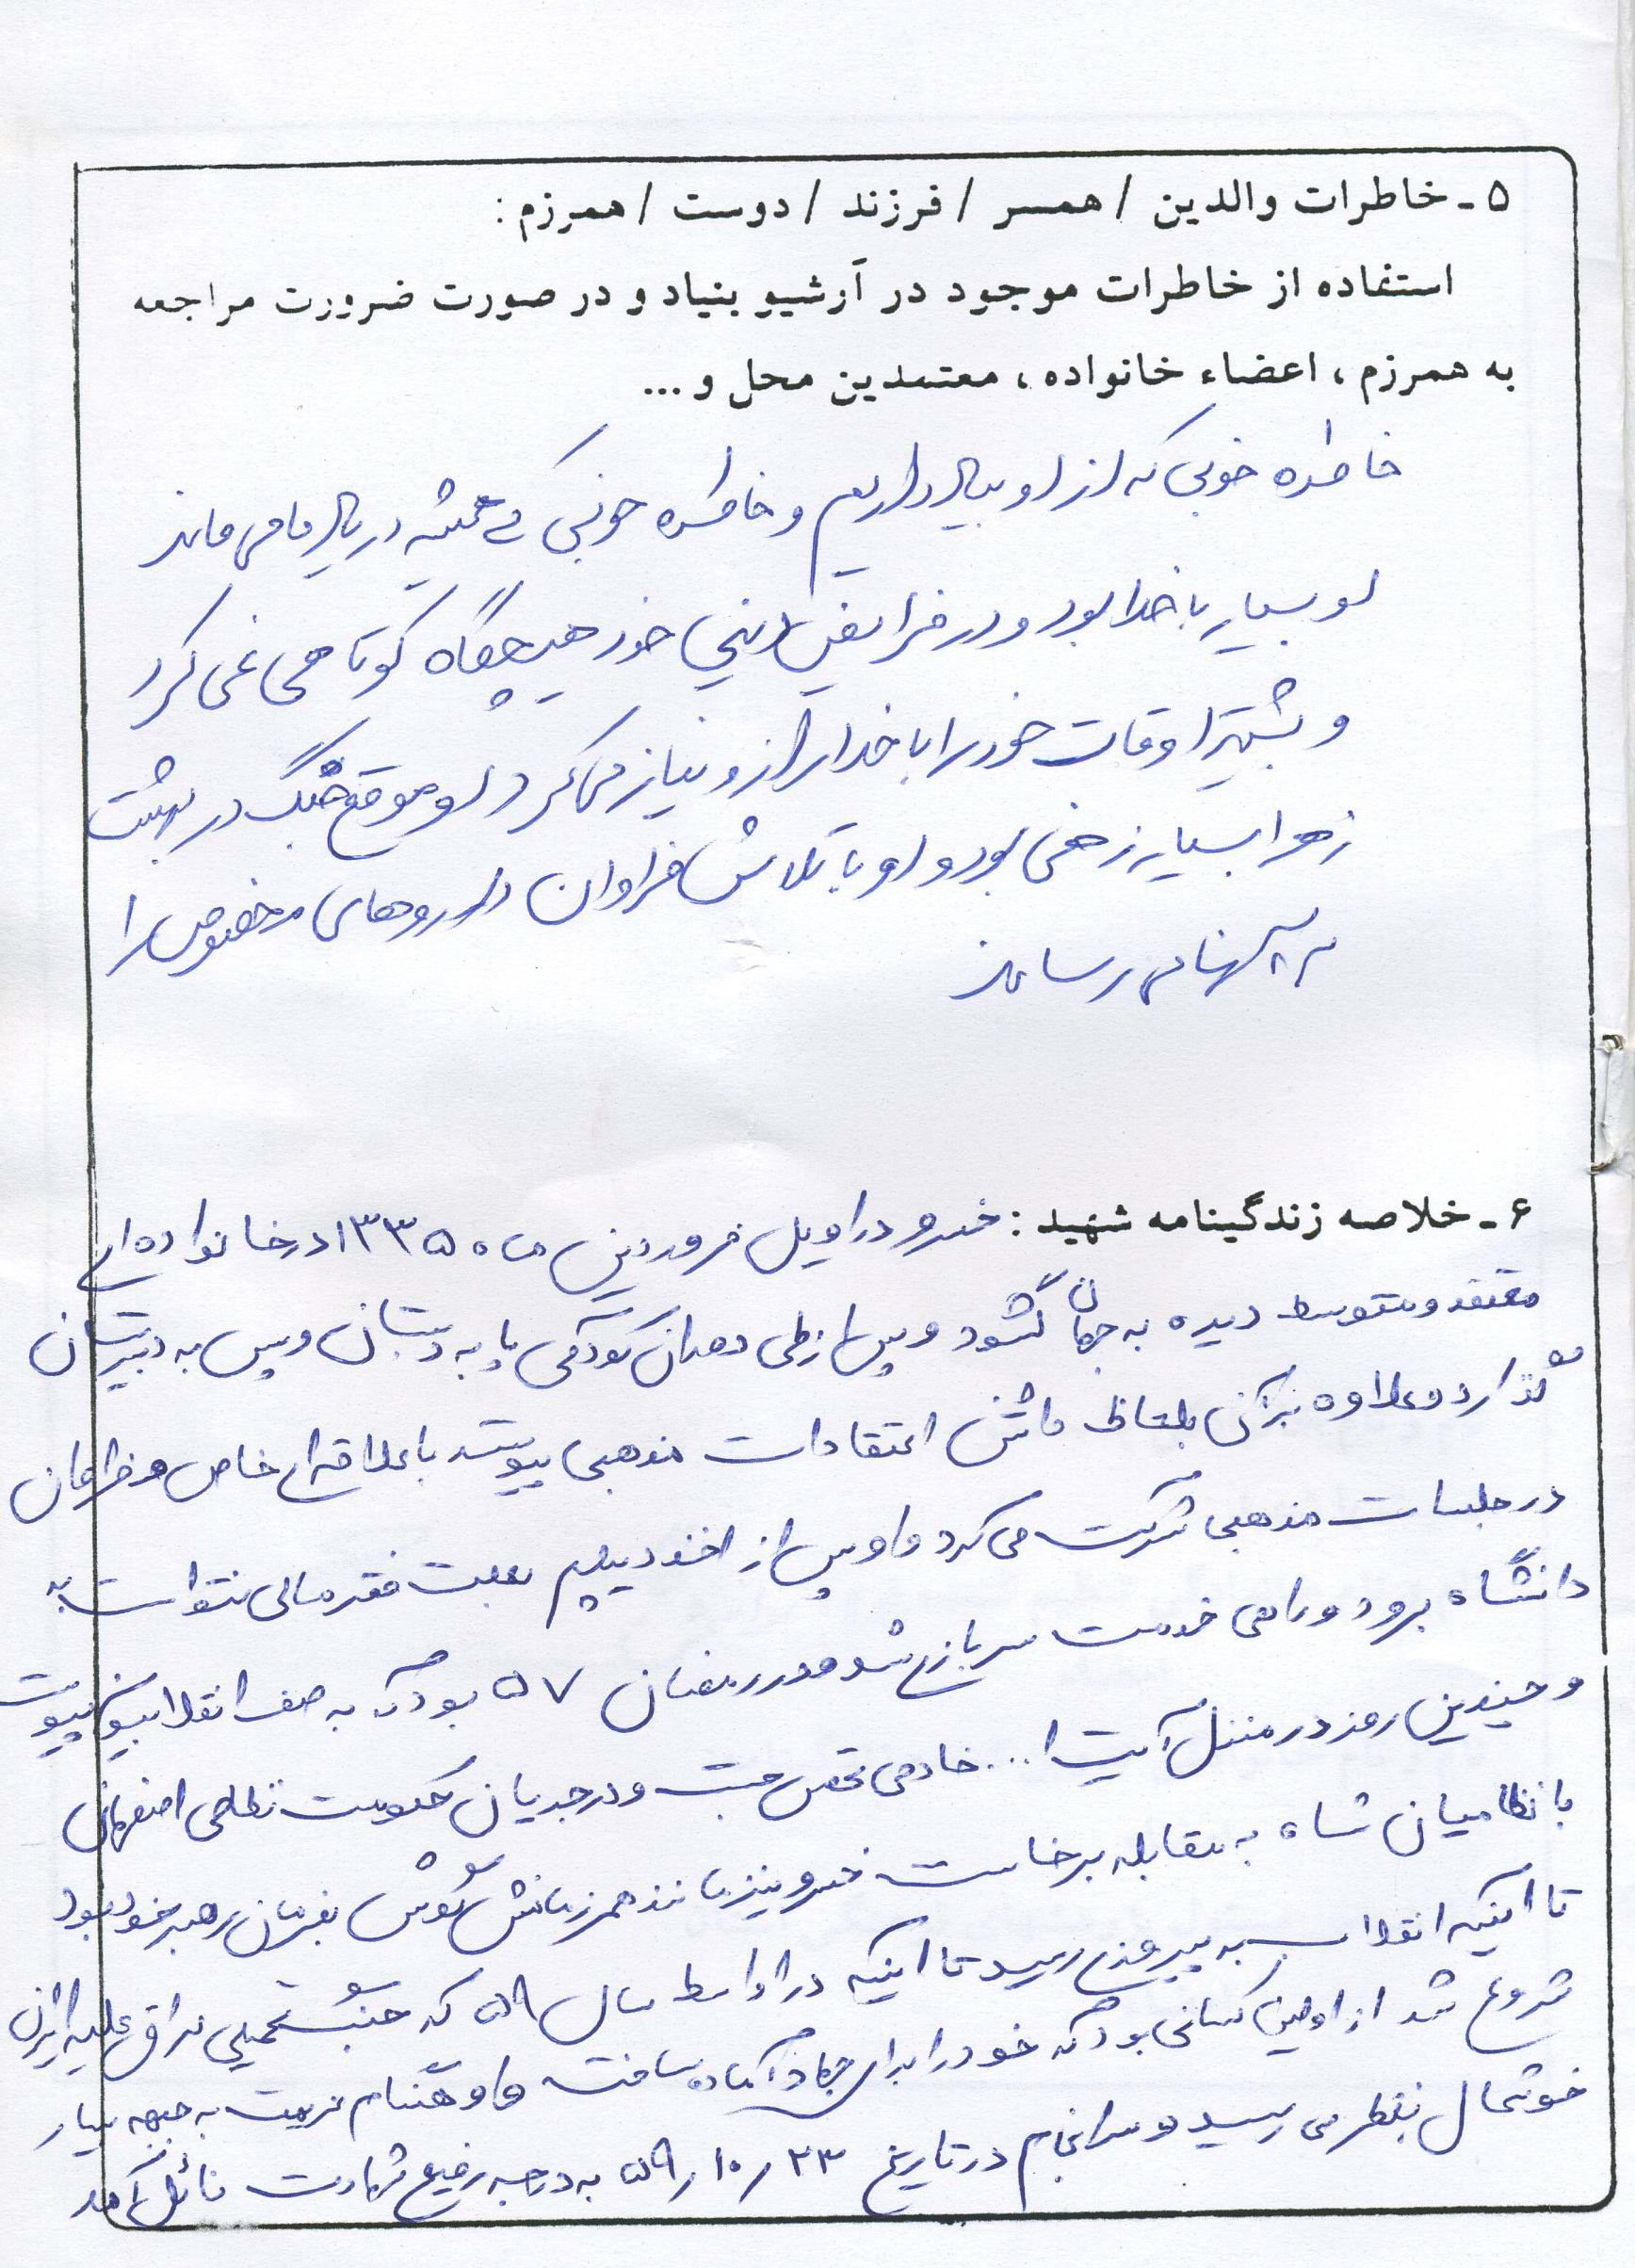 ۵ - خاطرات والدین / همسر / فرزند / دوست / همرزم :
استفاده از خاطرات موجود در آرشیو بنیاد و در صورت ضرورت مراجعه
به همرزم ، اعضاء خانواده ، معتمدین محل و ...
خاطره خوبی که از او بیاد داریم و خاطره خوبی که همیشه در یاد ما می ماند
او بسیار با خدا بود و در فرایض دینی خود هیچگاه کوتاهی نمی کرد
و بیشتر اوقات خود را با خدا راز و نیاز می کرد او موقع جنگ در بهشت
زهرا بسیار زخمی بود و او با تلاش فراوان داروهای مخصوص را
به آنها می رساند
۶ - خلاصه زندگینامه شهید : خسرو در اویل فروردین ماه ۱۳۳۵ در خانواده ای
معتقد و متوسط دیده به جهان گشود و پس از طی دوران کودکی پا به دبستان و پس به دبیرستان
گذارد و علاوه بر آن بلحاظ داشتن اعتقادات مذهبی پیوسته با علاقه ای خاص و فراوان
در جلسات مذهبی شرکت می کرد و او پس از اخذ دیپلم بعلت فقر مالی نتوانست به
دانشگاه برود و راهی خدمت سربازی شد و در رمضان ۵۷ بود که به صف انقلابیون پیوست
و چندین روز در منزل آیت ا... خادمی تحصن جست و در جریان حکومت نظامی اصفهان
با نظامیان شاه به مقابله برخاست خسرو نیز مانند همرزمانش گوش بفرمان رهبر خود بود
تا اینکه انقلاب به پیروزی رسید تا اینکه در اواسط سال ۵۹ که جنگ تحمیلی عراق علیه ایران
شروع شد از اولین کسانی بود که خود را برای جهاد آماده ساخت و او هنگام عزیمت به جبهه بسیار
خوشحال بنظر می رسید و سرانجام در تاریخ ۲۳ / ۱۰ / ۵۹ به درجه رفیع شهادت نائل آمد